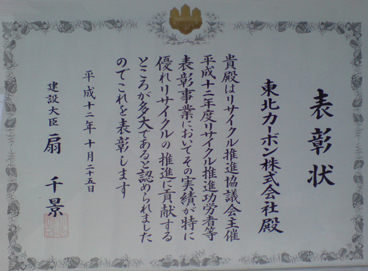 表彰状
東北カーボン株式会社殿
貴殿はリサイクル推進協議会主催
平成十二年度リサイクル推進功労者等
表彰事業においてその実績が特に
優れリサイクルの推進に貢献する
ところが多大であると認められました
のでこれを表彰します
平成十二年十月二十五日
建設大臣 扇千景